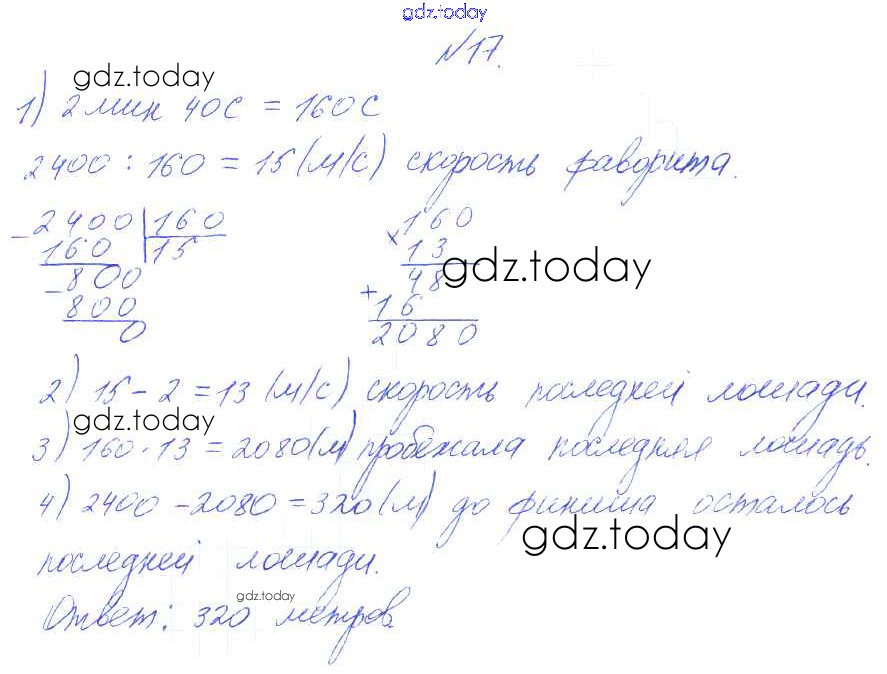 gdz.today
№17.
gdz.today
1) 2 мин 40с = 160с
2400 : 160 = 15 (м/с) скорость фаворита.
- 2400 | 160
160 | 15
- 800
800
0
× 160
13
gdz.today
+ 48
16
2080
2) 15 - 2 = 13 (м/с) скорость последней лошади.
gdz.today
3) 160 · 13 = 2080 (м) пробежала последняя лошадь.
4) 2400 - 2080 = 320 (м) до финиша осталось
gdz.today
последней лошади.
gdz.today
Ответ: 320 метров.